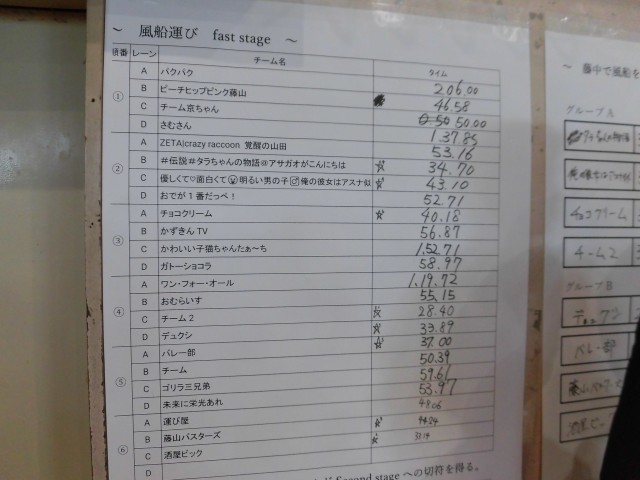 ～ 風船運び fast stage ～
順番 レーン チーム名 タイム
① A パクパク 206.00
B ピーチヒップピンク藤山 46.58
C チーム京ちゃん 50.00
D さむさん 1.37.85
② A ZETA|crazy raccoon 覚醒の山田 53.16
B #伝説#タラちゃんの物語@アサガオがこんにちは ☆ 34.70
C 優しくて♡面白くて 明るい男の子 俺の彼女はアスナ似 ☆ 43.10
D おでが1番だっべ! 52.71
③ A チョコクリーム ☆ 40.18
B かずきんTV 56.87
C かわいい子猫ちゃんたぁ～ち 1.52.71
D ガトーショコラ 58.97
④ A ワン・フォー・オール 1.19.72
B おむらいす 55.15
C チーム2 ☆ 28.40
D デュクシ ☆ 33.89
⑤ A バレー部 ☆ 37.00
B チーム 50.39
C ゴリラ三兄弟 59.61
D 未来に栄光あれ 53.97
⑥ A 運び屋 48.06
B 藤山バスターズ ☆ 44.84
C 酒屋ビック ☆ 33.14
D
Second stage への切符を得る。
～ 藤中で風船を
グループ A
チョコクリーム
チーム2
グループ B
デュクシ
バレー部